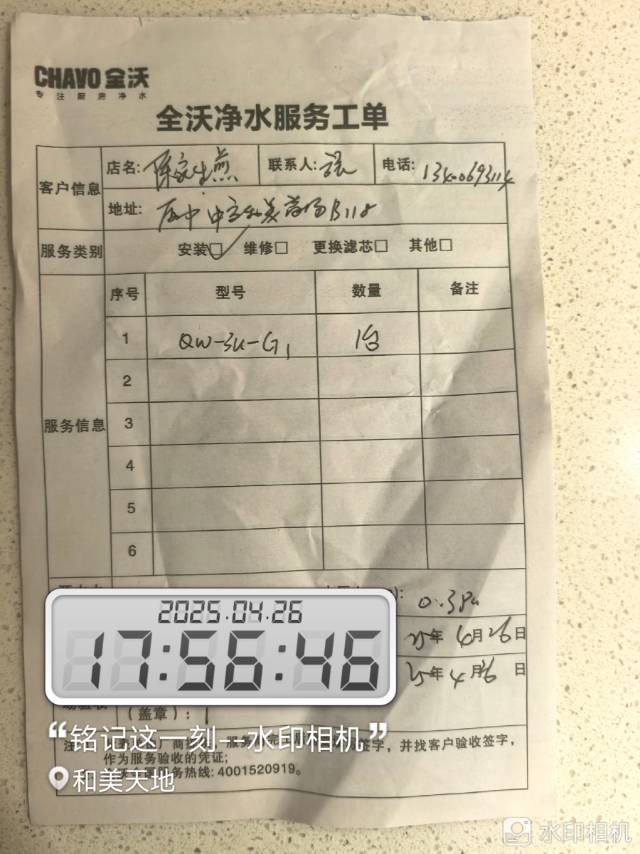 CHAVO 全沃
专注厨房净水
全沃净水服务工单
客户信息
店名: 联系人: 电话:
地址: B118
服务类别 安装☑ 维修□ 更换滤芯□ 其他□
服务信息
序号 型号 数量 备注
1 QW-3U-G1 1台
2
3
4
5
6
25年4月26日
25年4月26日
(盖章):
2025.04.26
17:56:46
“铭记这一刻—水印相机”
签字,并找客户验收签字,
作为服务验收的凭证;
服务热线: 4001520919。
和美天地
水印相机